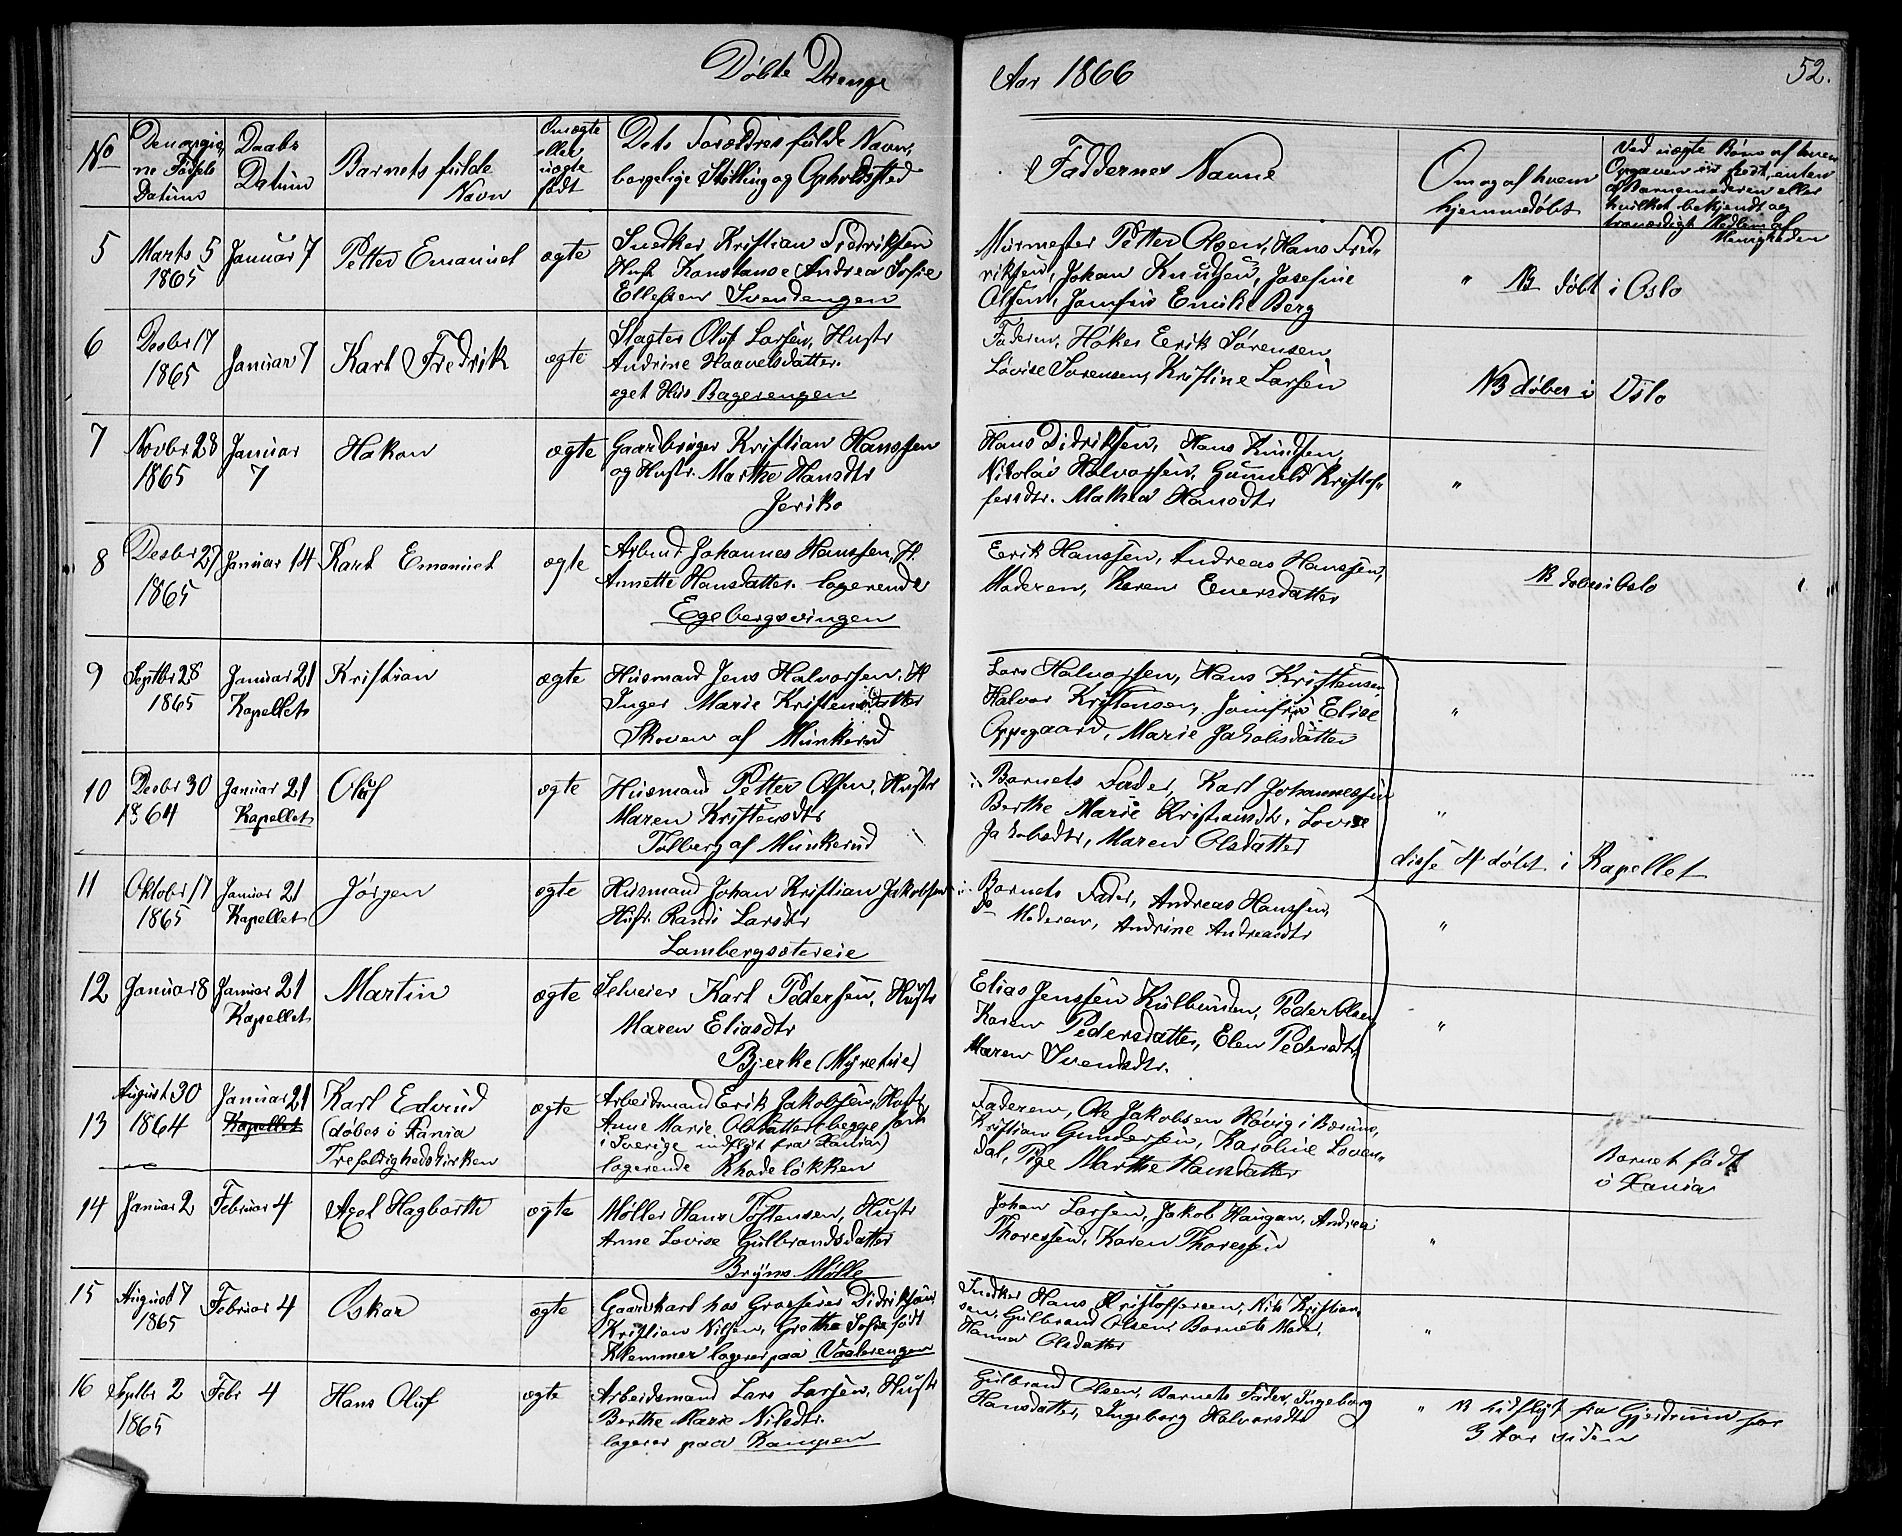 Døbte Drenge
Aar 1866
52.
No
Den opgiv
ne Fødsels
Datum
Daabs
Datum
Barnets fulde
Navn
Om ægte
eller
uægte
født
Dets Forældres fulde Navn,
borgelige Stilling og Opholdsted
Faddernes Navne
Om og af hvem
hjemmedøbt
Ved uægte Børn af hvem
Opgaven er skedt, enten
af Barnemoderen eller
hvilket bekjendt og
troværdigt Medlem af
Menigheden
5
Marts 5
1865
Januar 7
Petter Emanuel
ægte
Snedker Kristian Fredriksen
Hust. Konstanse Andrea Sofie
Ellefsen Svendengen
Murmester Petter Olsen, Hans Fred-
riksen, Johan Knudsen, Josefine
Olsen, Jomfru Emilie Berg
" NB døbt i Oslo
6
Desbr 17
1865
Januar 7
Karl Fredrik
ægte
Slagter Oluf Larsen, Hustr
Andrine Haavelsdatter.
eget Hus Bagerengen
Faderen, Høker Eerik Sørensen,
Lovise Sørensen, Kristine Larsen
NB døbes i Oslo
7
Novbr 28
1865
Januar
7
Hakon
ægte
Gaardbruger Kristian Hanssen
og Hustr. Marthe Hansdtr
Jeriko
Hans Didriksen, Hans Knudsen,
Nikolai Halvorsen, Gunnild Kristof-
fersdtr. Mathea Hansdtr
"
8
Desbr 27
1865
Januar 14
Karl Emanuel
ægte
Arbmd Johannes Hanssen, H.
Annette Hansdatter. logerende
Egebergsvingen
Eerik Hanssen, Andreas Hanssen,
Moderen, Karen Eversdatter
NB døbes i Oslo
9
Septbr 28
1865
Januar 21
Kapellet
Kristian
ægte
Husmand Jens Halvorsen, H
Inger Marie Kristensdatter
Skoven af Munkerud
Lars Halvorsen, Hans Kristensen,
Halvor Kristensen, Jomfru Elise
Oppegaard, Marie Jakobsdatter
"
10
Desbr 30
1864
Januar 21
Kapellet
Oluf
ægte
Husmand Petter Olsen, Hustr
Maren Kristensdtr
Tolberg af Munkerud
Barnets Fader, Karl Johannessen
Berthe Marie Kristiansdtr, Lovise
Jakobsdtr, Maren Olsdatter
"
disse 4 døbt i Kapellet
11
Oktober 17
1865
Januar 21
Kapellet
Jørgen
ægte
Husmand Johan Kristian Jakobsen
Hustr. Randi Larsdtr
Lambergsetereie
Barnets Fader, Andreas Hanssen,
do Moderen, Andrine Andreasdtr
"
12
Januar 8
Januar 21
Kapellet
Martin
ægte
Selveier Karl Pedersen, Hustr
Maren Eliasdtr
Bjerke (Myretuie)
Elias Jenssen Kulbunden, Peder Olsen,
Karen Pedersdatter, Elen Pedersdtr,
Maren Svendsdtr.
"
13
August 30
1864
Januar 21
Kapellet
Karl Edvind
(døbes i Xania
Trefoldighedskirken
ægte
Arbeidsmand Eerik Jakobsen, Hustr
Anne Marie Olsdatter (begge født
i Sverige indflyt fra Xania)
logerende Rhodeløkken
Faderen, Ole Jakobsen Høvig i Bærum,
Kristian Gundersen, Karoline Loven-
dal, Pige Marthe Hansdatter
Barnet født
i Xania
14
Januar 2
Februar 4
Axel Hagbarth
ægte
Møller Hans Tostensen, Hustr
Anne Lovise Gulbrandsdatter
Bryns Mølle
Johan Larsen, Jakob Haugan, Andrea
Thoressen, Karen Thoressen
"
15
August 7
1865
Februar 4
Oskar
ægte
Gaardskarl hos Grosserer Didriksen
Kristian Nilsen, Grethe Sofie født
Klemmer logerer paa Vaalerengen
Snedker Hans Kristoffersen, Nils Kristian-
sen, Gulbrand Olsen, Barnets Moder,
Hanna Olsdatter
"
16
Septbr 2
1865
Febr 4
Hans Oluf
ægte
Arbeidsmand Lars Larsen, Hustr
Berthe Marie Nilsdtr.
logerer paa Kampen
Gulbrand Olsen, Barnets Fader, Ingeborg
Hansdatter, Ingeborg Halvorsdtr
" NB tilflyt fra Gjerdrum for
3 Aar siden